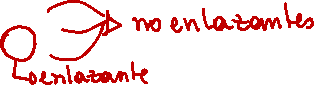 no enlazantes
enlazante